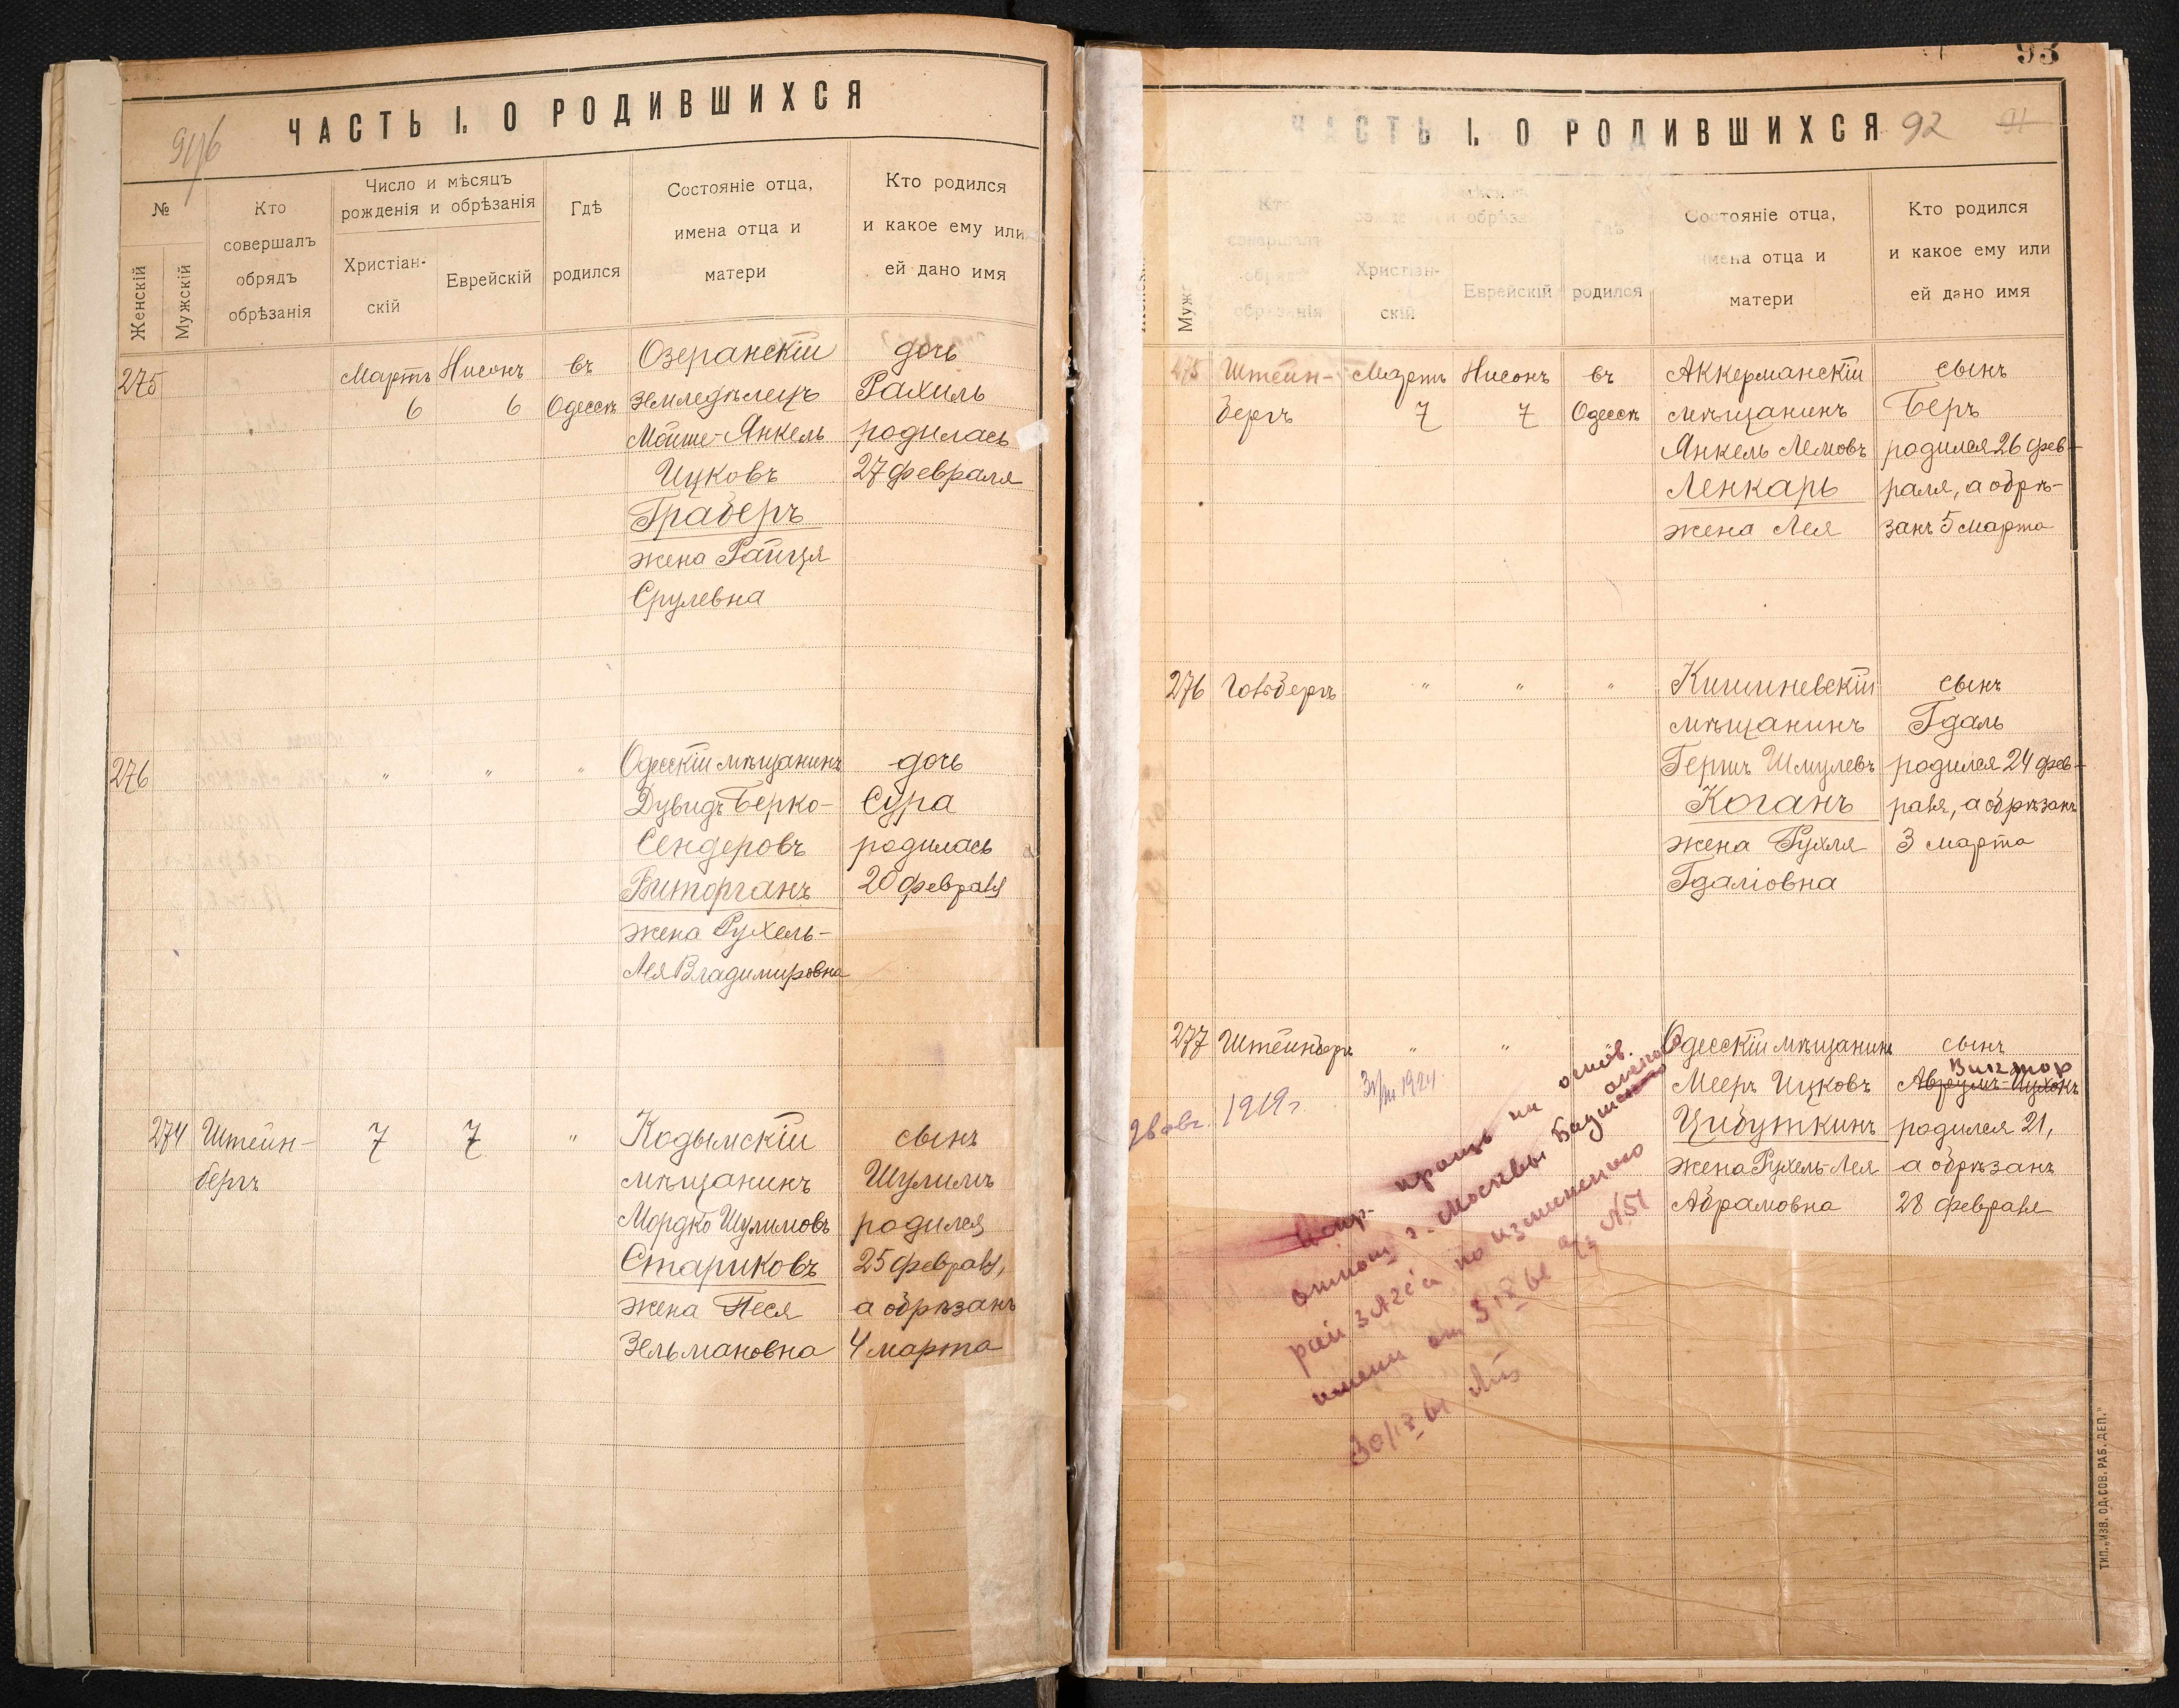 ЧАСТЬ I. О РОДИВШИХСЯ
№
Женскій
Мужскій
Кто
совершалъ
обрядъ
обрѣзанія
Число и мѣсяцъ
рожденія и обрѣзанія
Христіан-
скій
Еврейскій
Гдѣ
родился
Состояніе отца,
имена отца и
матери
Кто родился
и какое ему или
ей дано имя
275
Мартъ
6
Нисонъ
6
въ
Одессѣ
Озеранскій
Землед‌ѣлецъ
Мойше-Янкель
Ицковъ
Граберъ
жена Райця
Срулевна
дочь
Рахиль
родилась
27 февраля
276
"
"
"
Одесскій мѣщанинъ
Дувидъ Берко-
Сендеровъ
Виторганъ
жена Рухель-
Лея Владимировна
дочь
Сура
родилась
20 февраля
274
Штейн-
бергъ
7
7
"
Кодымскій
мѣщанинъ
Мордко Шулимовъ
Стариковъ
жена Песя
Зельмановна
сынъ
Шулимъ
родился
25 февраля,
а обрѣзанъ
4 марта
93
ЧАСТЬ I. О РОДИВШИХСЯ
92
91
Христіан-
скій
Еврейскій
родился
Состояніе отца,
имена отца и
матери
Кто родился
и какое ему или
ей дано имя
275
Штейн-
бергъ
Мартъ
7
Нисонъ
7
въ
Одессѣ
Аккерманскій
мѣщанинъ
Янкель Лемовъ
Ленкарь
жена Лея
сынъ
Беръ
родился 26 фев-
раля, а обрѣ-
занъ 5 марта
276
Голдбергъ
"
"
"
Кишиневскій
мѣщанинъ
Гершъ Шмулевъ
Коганъ
жена Рухля
Гдаліовна
сынъ
Гдаль
родился 24 фев-
раля, а обрѣзанъ
3 марта
277
Штейнбергъ
"
"
Одесскій мѣщанинъ
Мееръ Ицковъ
Цибуткинъ
жена Рухель-Лея
Абрамовна
сынъ
Виктор
Аврумъ-Ицхокъ
родился 21,
а обрѣзанъ
28 февраля
1919 г.
1924
на основ.
г. Москвы
по изменению
имени от
№51
ТИП. „ИЗВ. ОД. СОВ. РАБ. ДЕП."